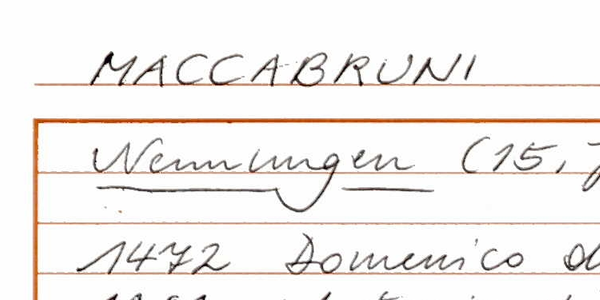 MACCABRUNI
Nennungen (15,
1472 Domenico d